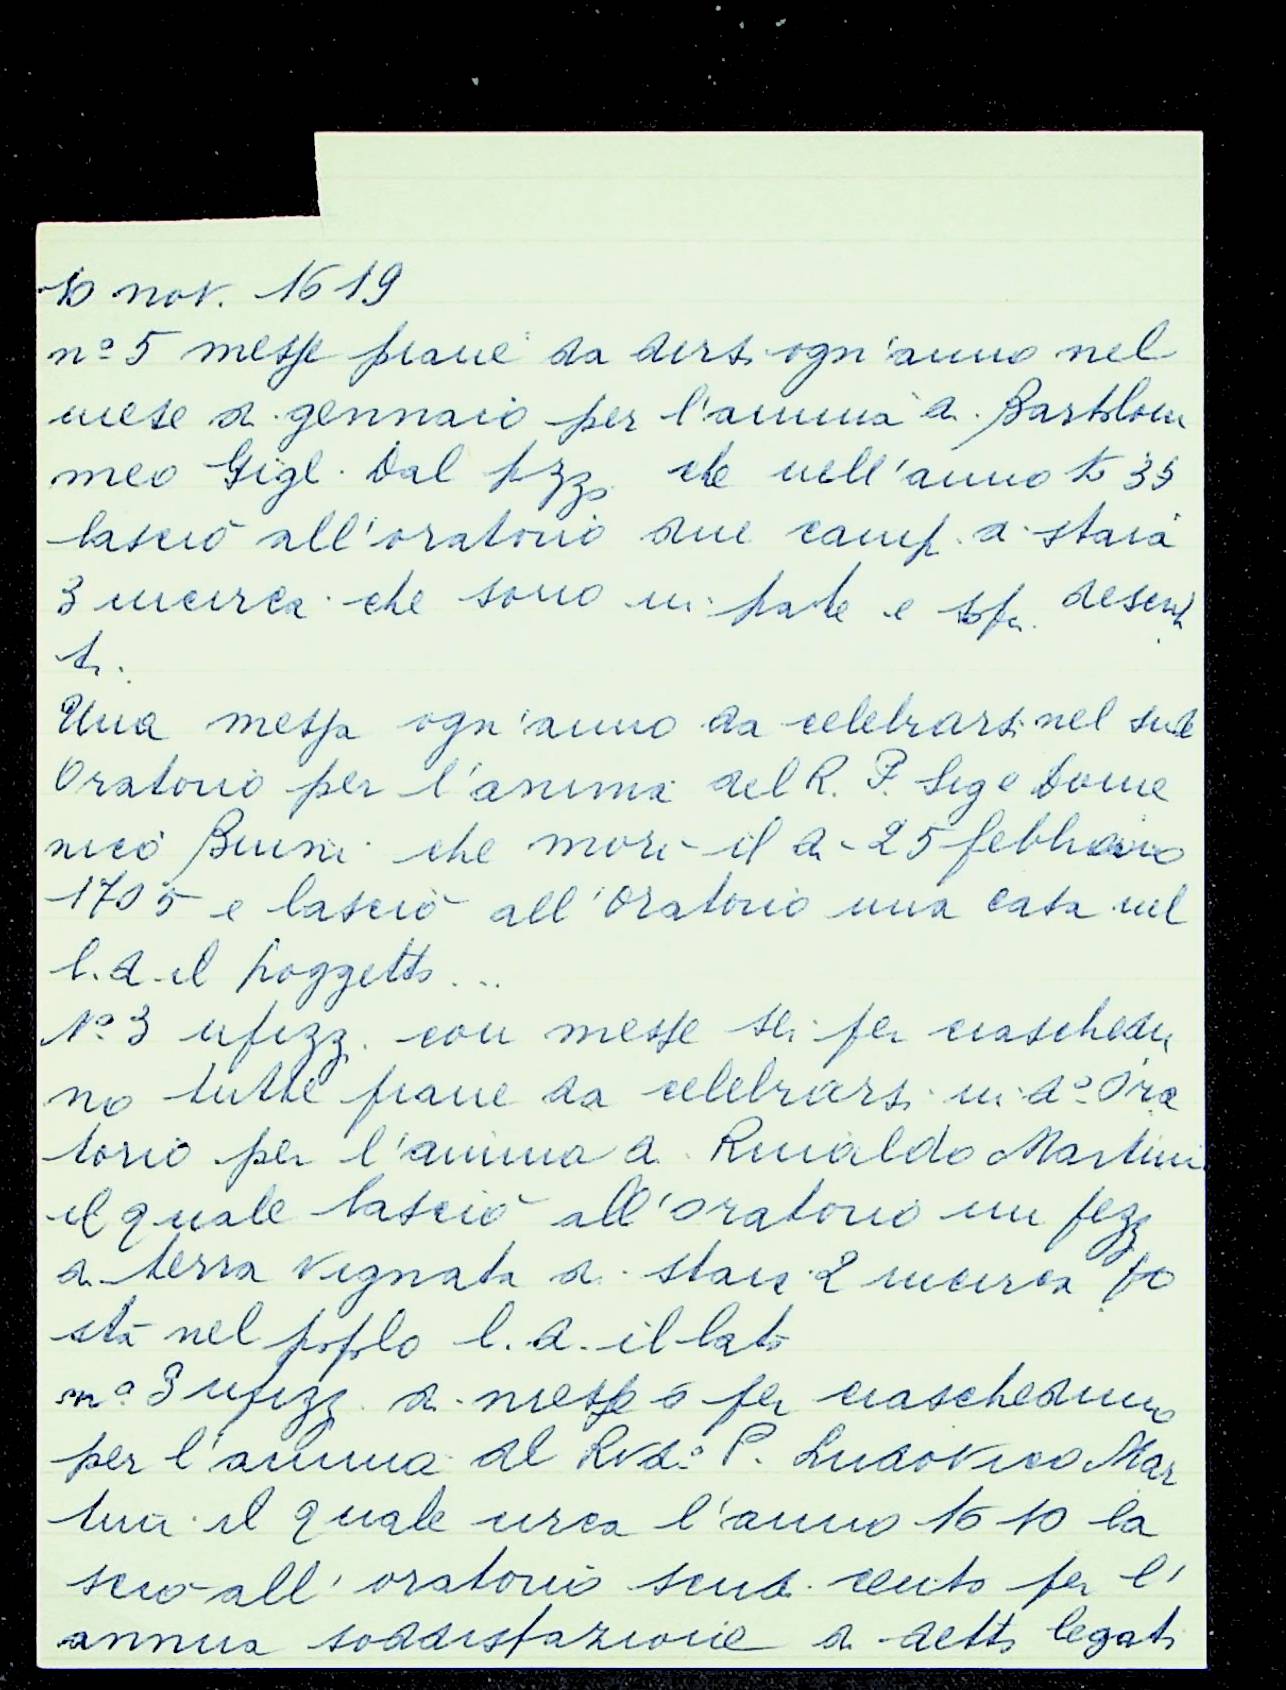 10 nov. 1619
nº 5 messe piane da dirsi ogn'anno nel
mese di gennaio per l'anima di Bartolom
meo Gigli Dal che nell'anno 1635
lasciò all'oratorio due campi di staia
3 incirca che sono in parte e descrit
ti.
Una messa ogn'anno da celebrarsi nel sud
Oratorio per l'anima del R. P. Sige Dome
nico Buini che morì il dì 25 febbraio
1705 e lasciò all'Oratorio una casa nel
l. d. il poggetto...
Nº 3 ufizzi con messe sei per ciaschedu
no tutte piane da celebrarsi in dº Ora
torio per l'anima di Rinaldo Martini
il quale lasciò all'oratorio un pezzo
di terra vignata di staia 2 incirca po
sta nel popolo l. d. il lato
nº 3 ufizzi di messe 6 per ciascheduno
per l'anima del Rvdº P. Ludovico Mar
tini il quale circa l'anno 1610 la
sciò all'oratorio scudi cento per l'
annua soddisfazione di detti legati